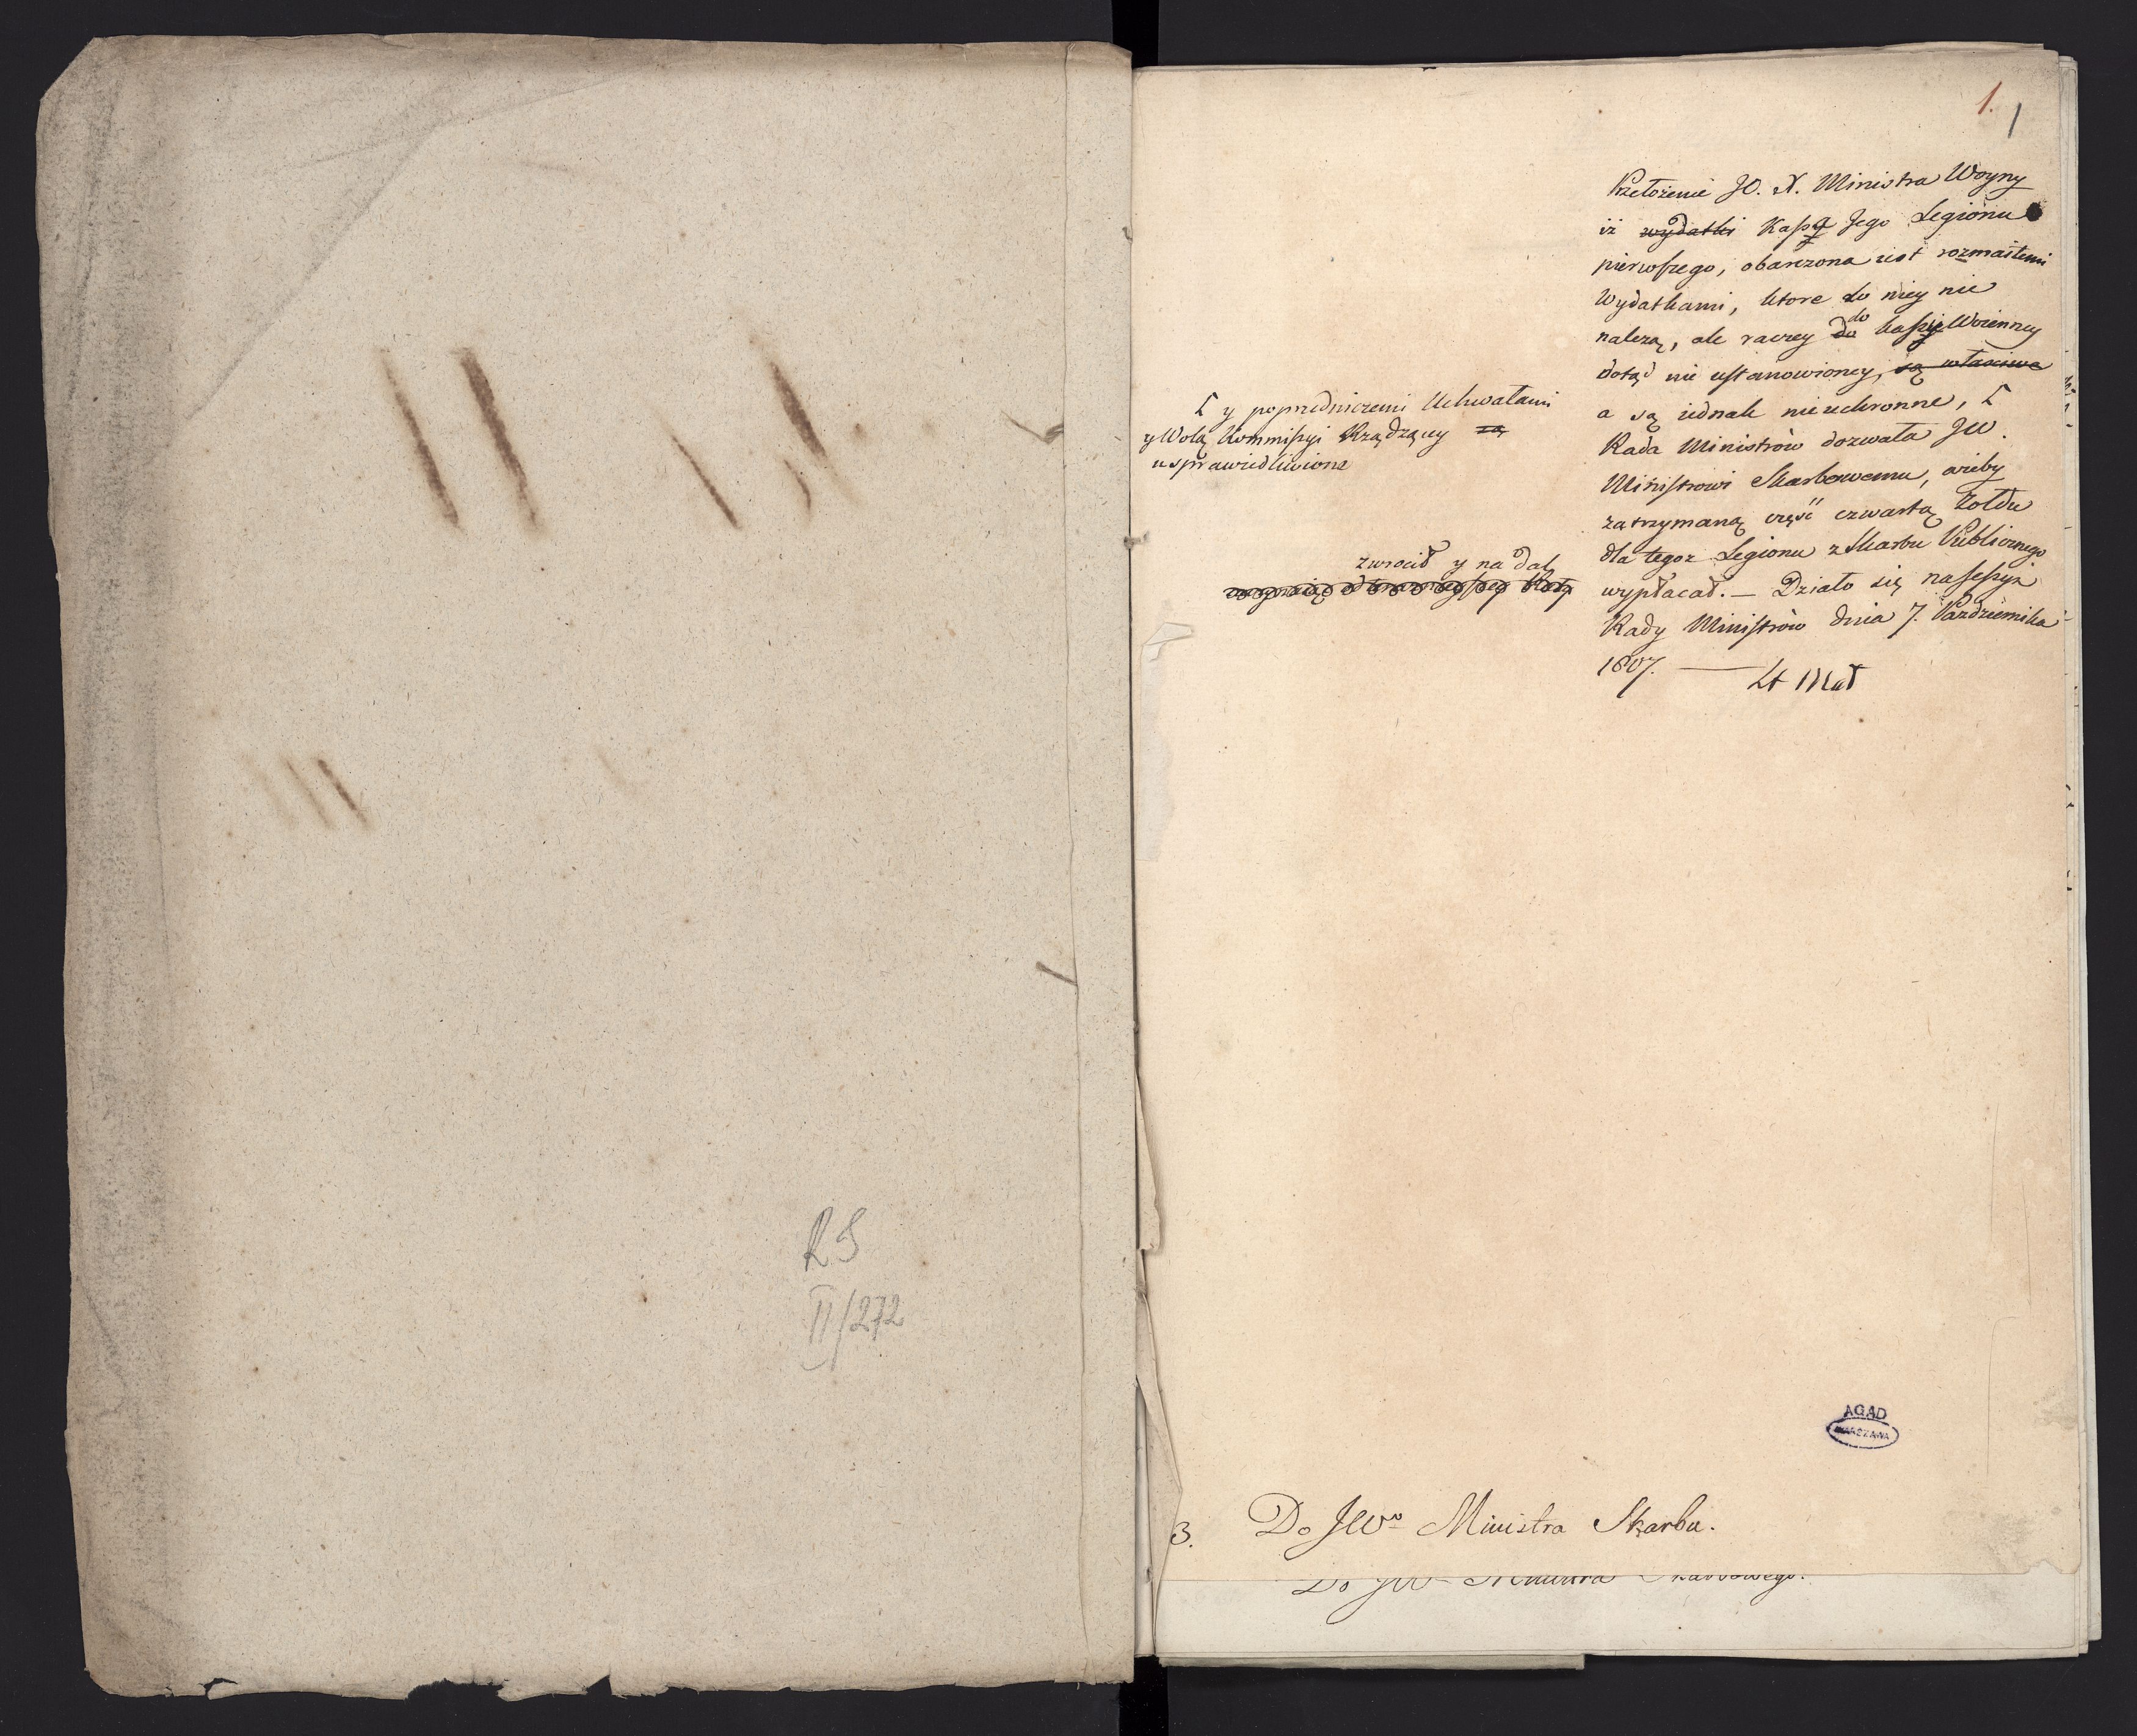 RS
II/272
1. 1
Przełożenie JO. X. Ministra Woyny
iż wydatki Kassa Jego Legionu
pierwszego, obarczona iest rozmaitemi
Wydatkami, ktore do niey nie
należą, ale raczey do do kassy Woienney
dotąd nie ustanowioney, są własciwe
a są iednak nieuchronne, [
[ y poprzedniczemi Uchwałami
y Wolą Kommissyi Rządzącey są
usprawiedliwione
Rada Ministrów dozwala JW.
Ministrowi Skarbowemu, ażeby
zatrzymaną część czwartą Żołdu
dla tegoż Legionu z Skarbu Publicznego
zwrocił y na dal
wypłacał. — Działo się na sessyi
Rady Ministrów dnia 7. Pazdziernika
1807. —
3. Do JWo Ministra Skarbu.
Do JW Ministra Skarbowego.
AGAD
WARSZAWA